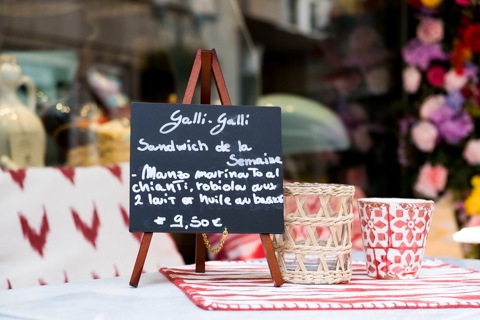 Galli-Galli
Sandwich de la
Semaine
- Manzo marinato al
chianti, robiola aux
2 lait et huile au basilic
9,50€